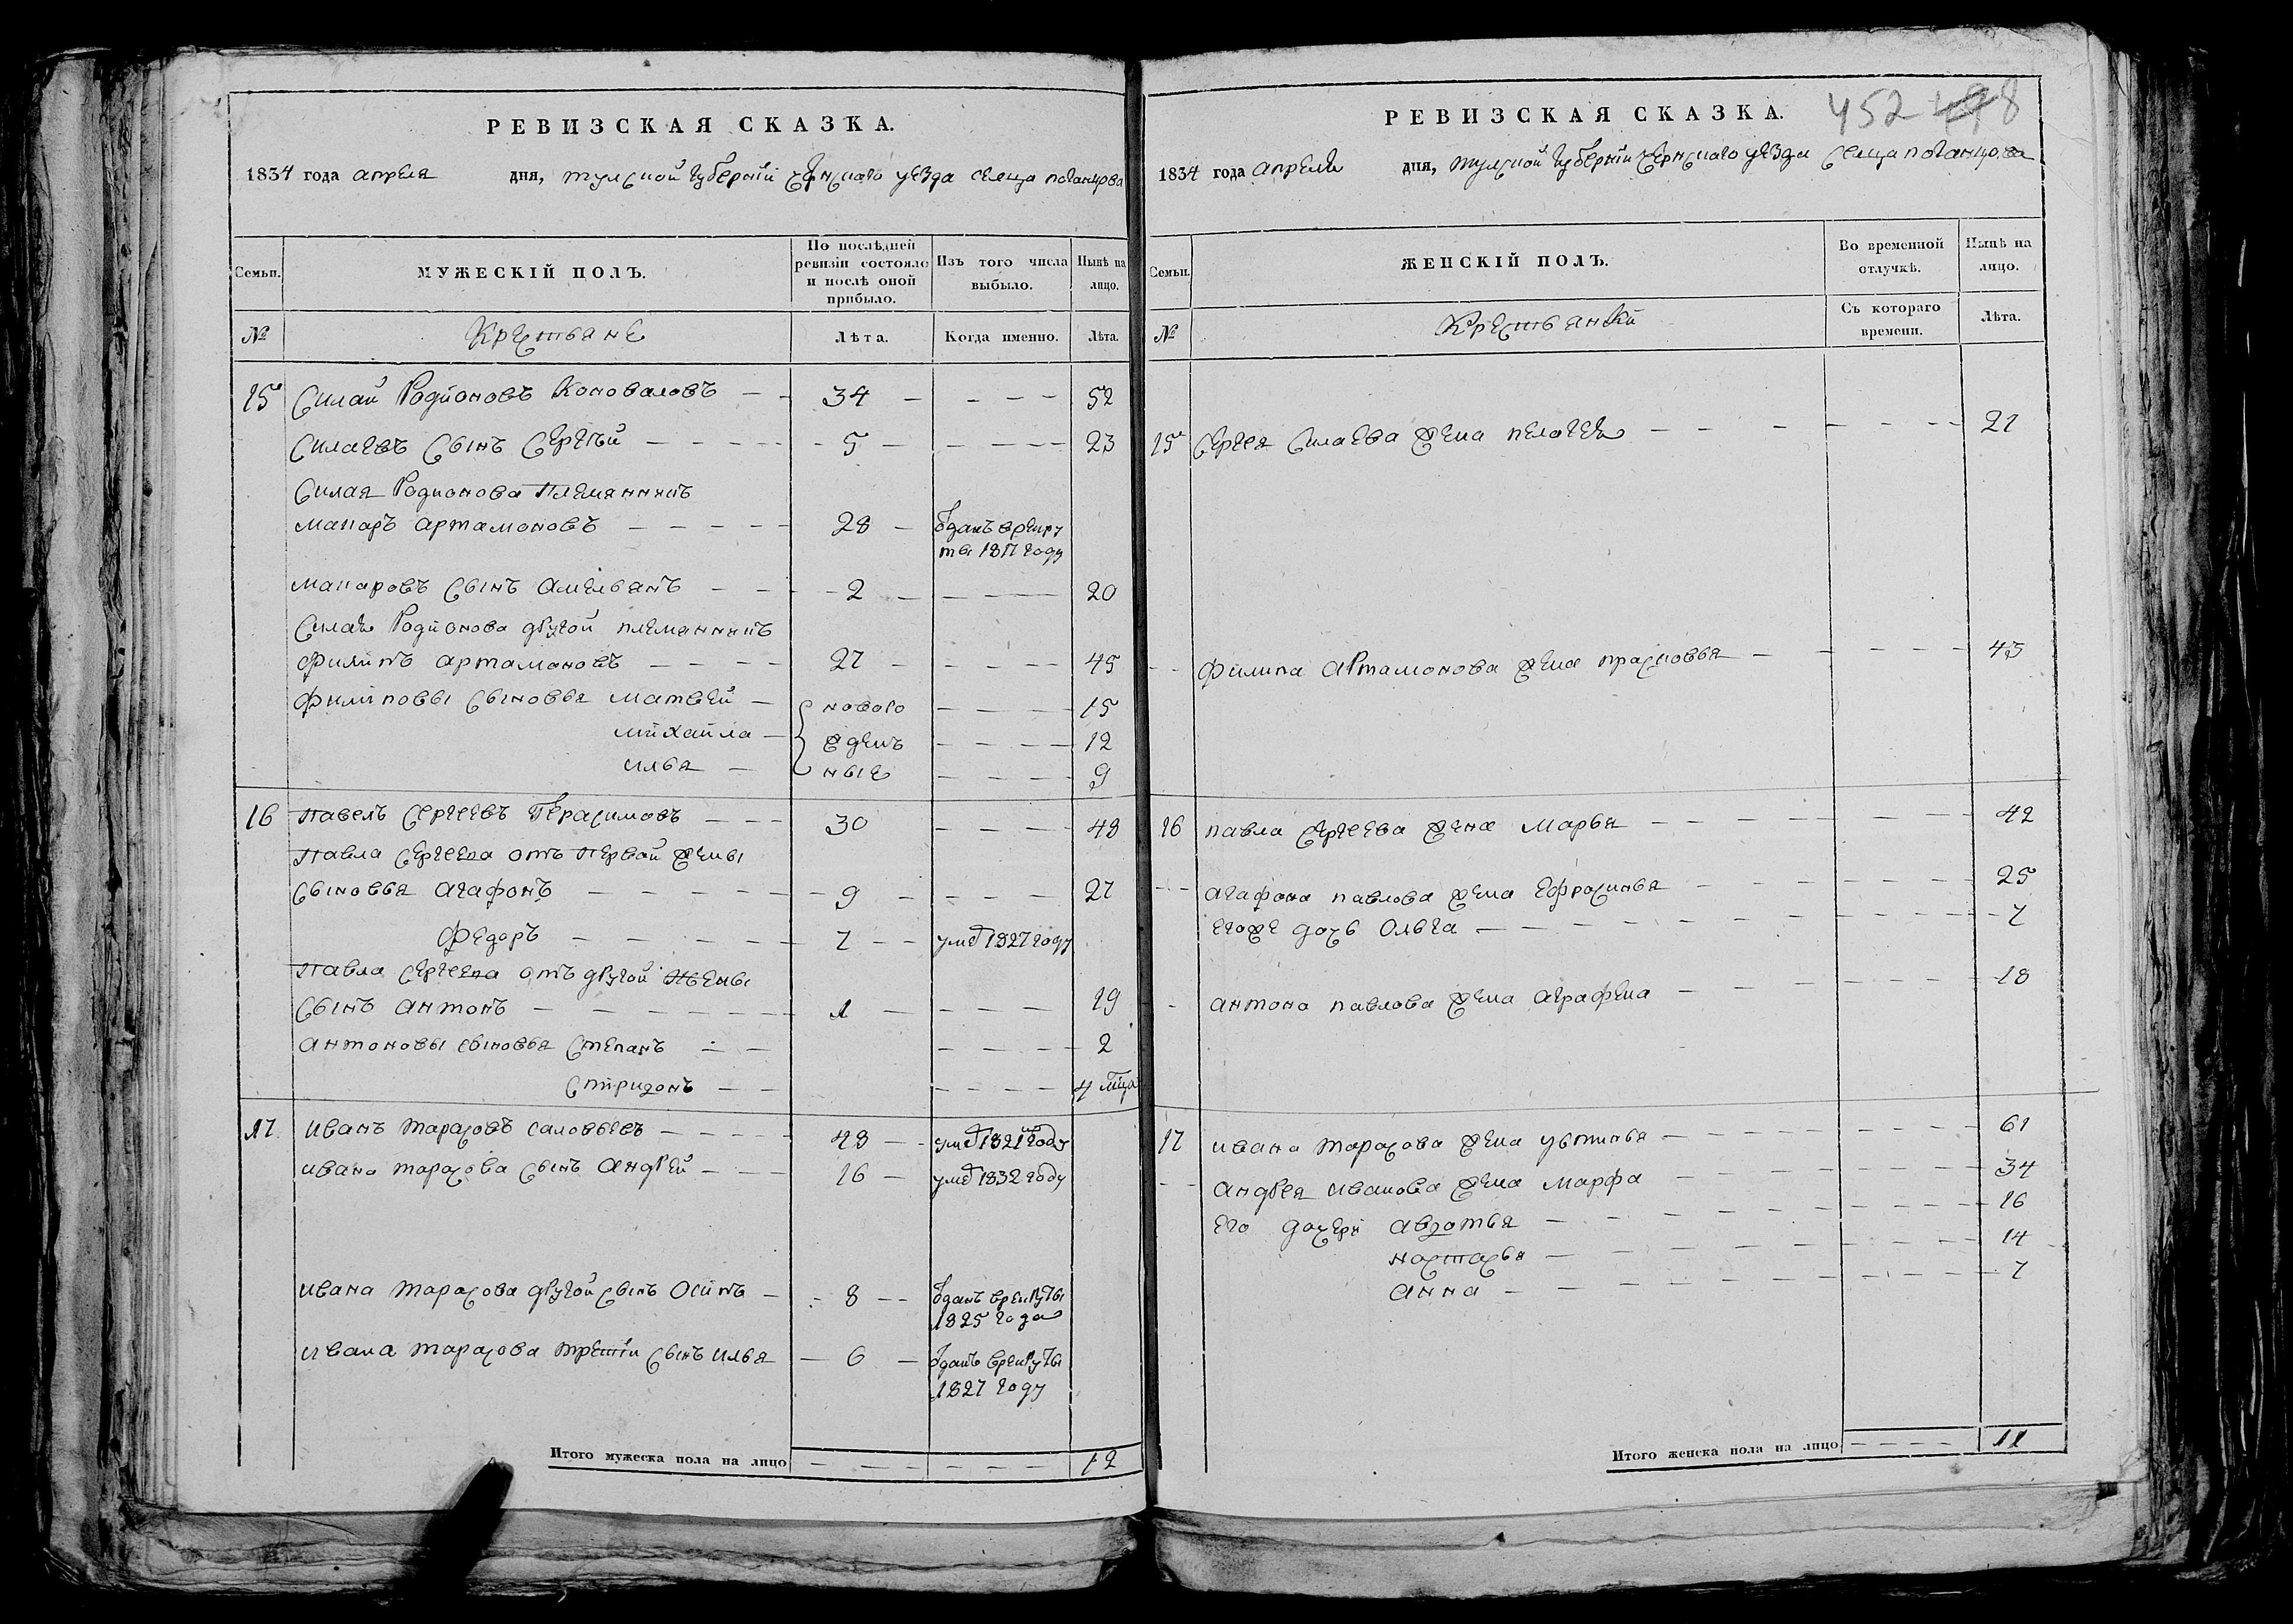 РЕВИЗСКАЯ СКАЗКА.
1834 года апреля дня, тулской губерніи чернскаго уезда селца поганцова
Семьи. МУЖЕСКІЙ ПОЛЪ. По послѣдней ревизіи состояло и послѣ оной прибыло. Изъ того числа выбыло. Нынѣ на лицо.
№ Крестьяне Лѣта. Когда именно. Лѣта.
15 Силай Родионовъ Коноваловъ 34 52
Силаевъ Сынъ Сергѣй 5 23
Силая Родионова Племянникъ
макаръ артамоновъ 28 ѿданъ врекру
ты 1817 году
макаровъ Сынъ Амельянъ 2 20
Силая Родионова другой племянникъ
филипъ артамоновъ 27 45
филиповы Сыновья матвей новоро 15
михайла жден 12
илья ные 9
16 павелъ Сергеевъ Герасимовъ 30 48
павла Сергеева отъ первой жены
Сыновья агафонъ 9 27
федоръ 7 умеᵈ 1827 году
павла Сергеева отъ другой жены
Сынъ антонъ 1 19
антоновы сыновья Степанъ 2
Спиридонъ 4 мца
17 иванъ тарасовъ саловьевъ 43 умеᵈ 1821 году
ивана тарасова Сынъ андрей 16 умеᵈ 1832 году
ивана тарасова другой сынъ Осипъ 8 ѿданъ врекруты
1825 года
ивана тарасова третіи Сынъ илья 6 ѿданъ врекруты
1827 году
Итого мужеска пола на лицо 12
РЕВИЗСКАЯ СКАЗКА. 452
1834 года апреля дня, тулской губерніи чернскаго уезда селца поганцова
Семьи. ЖЕНСКІЙ ПОЛЪ. Во временной отлучкѣ. Нынѣ на лицо.
№ Крестьянки Съ котораго времени. Лѣта.
15 Сергея Силаева жена пелагея 21
филипа артамонова жена прасковья 43
16 павла Сергеева жена марья 42
агафона павлова жена ефросинья 25
егоже дочь Ольга 7
антона павлова жена аграфена 18
17 ивана тарасова жена устинья 61
андрея иванова жена марфа 34
его дочери авдотья 16
настасья 14
анна 7
Итого женска пола на лицо 11